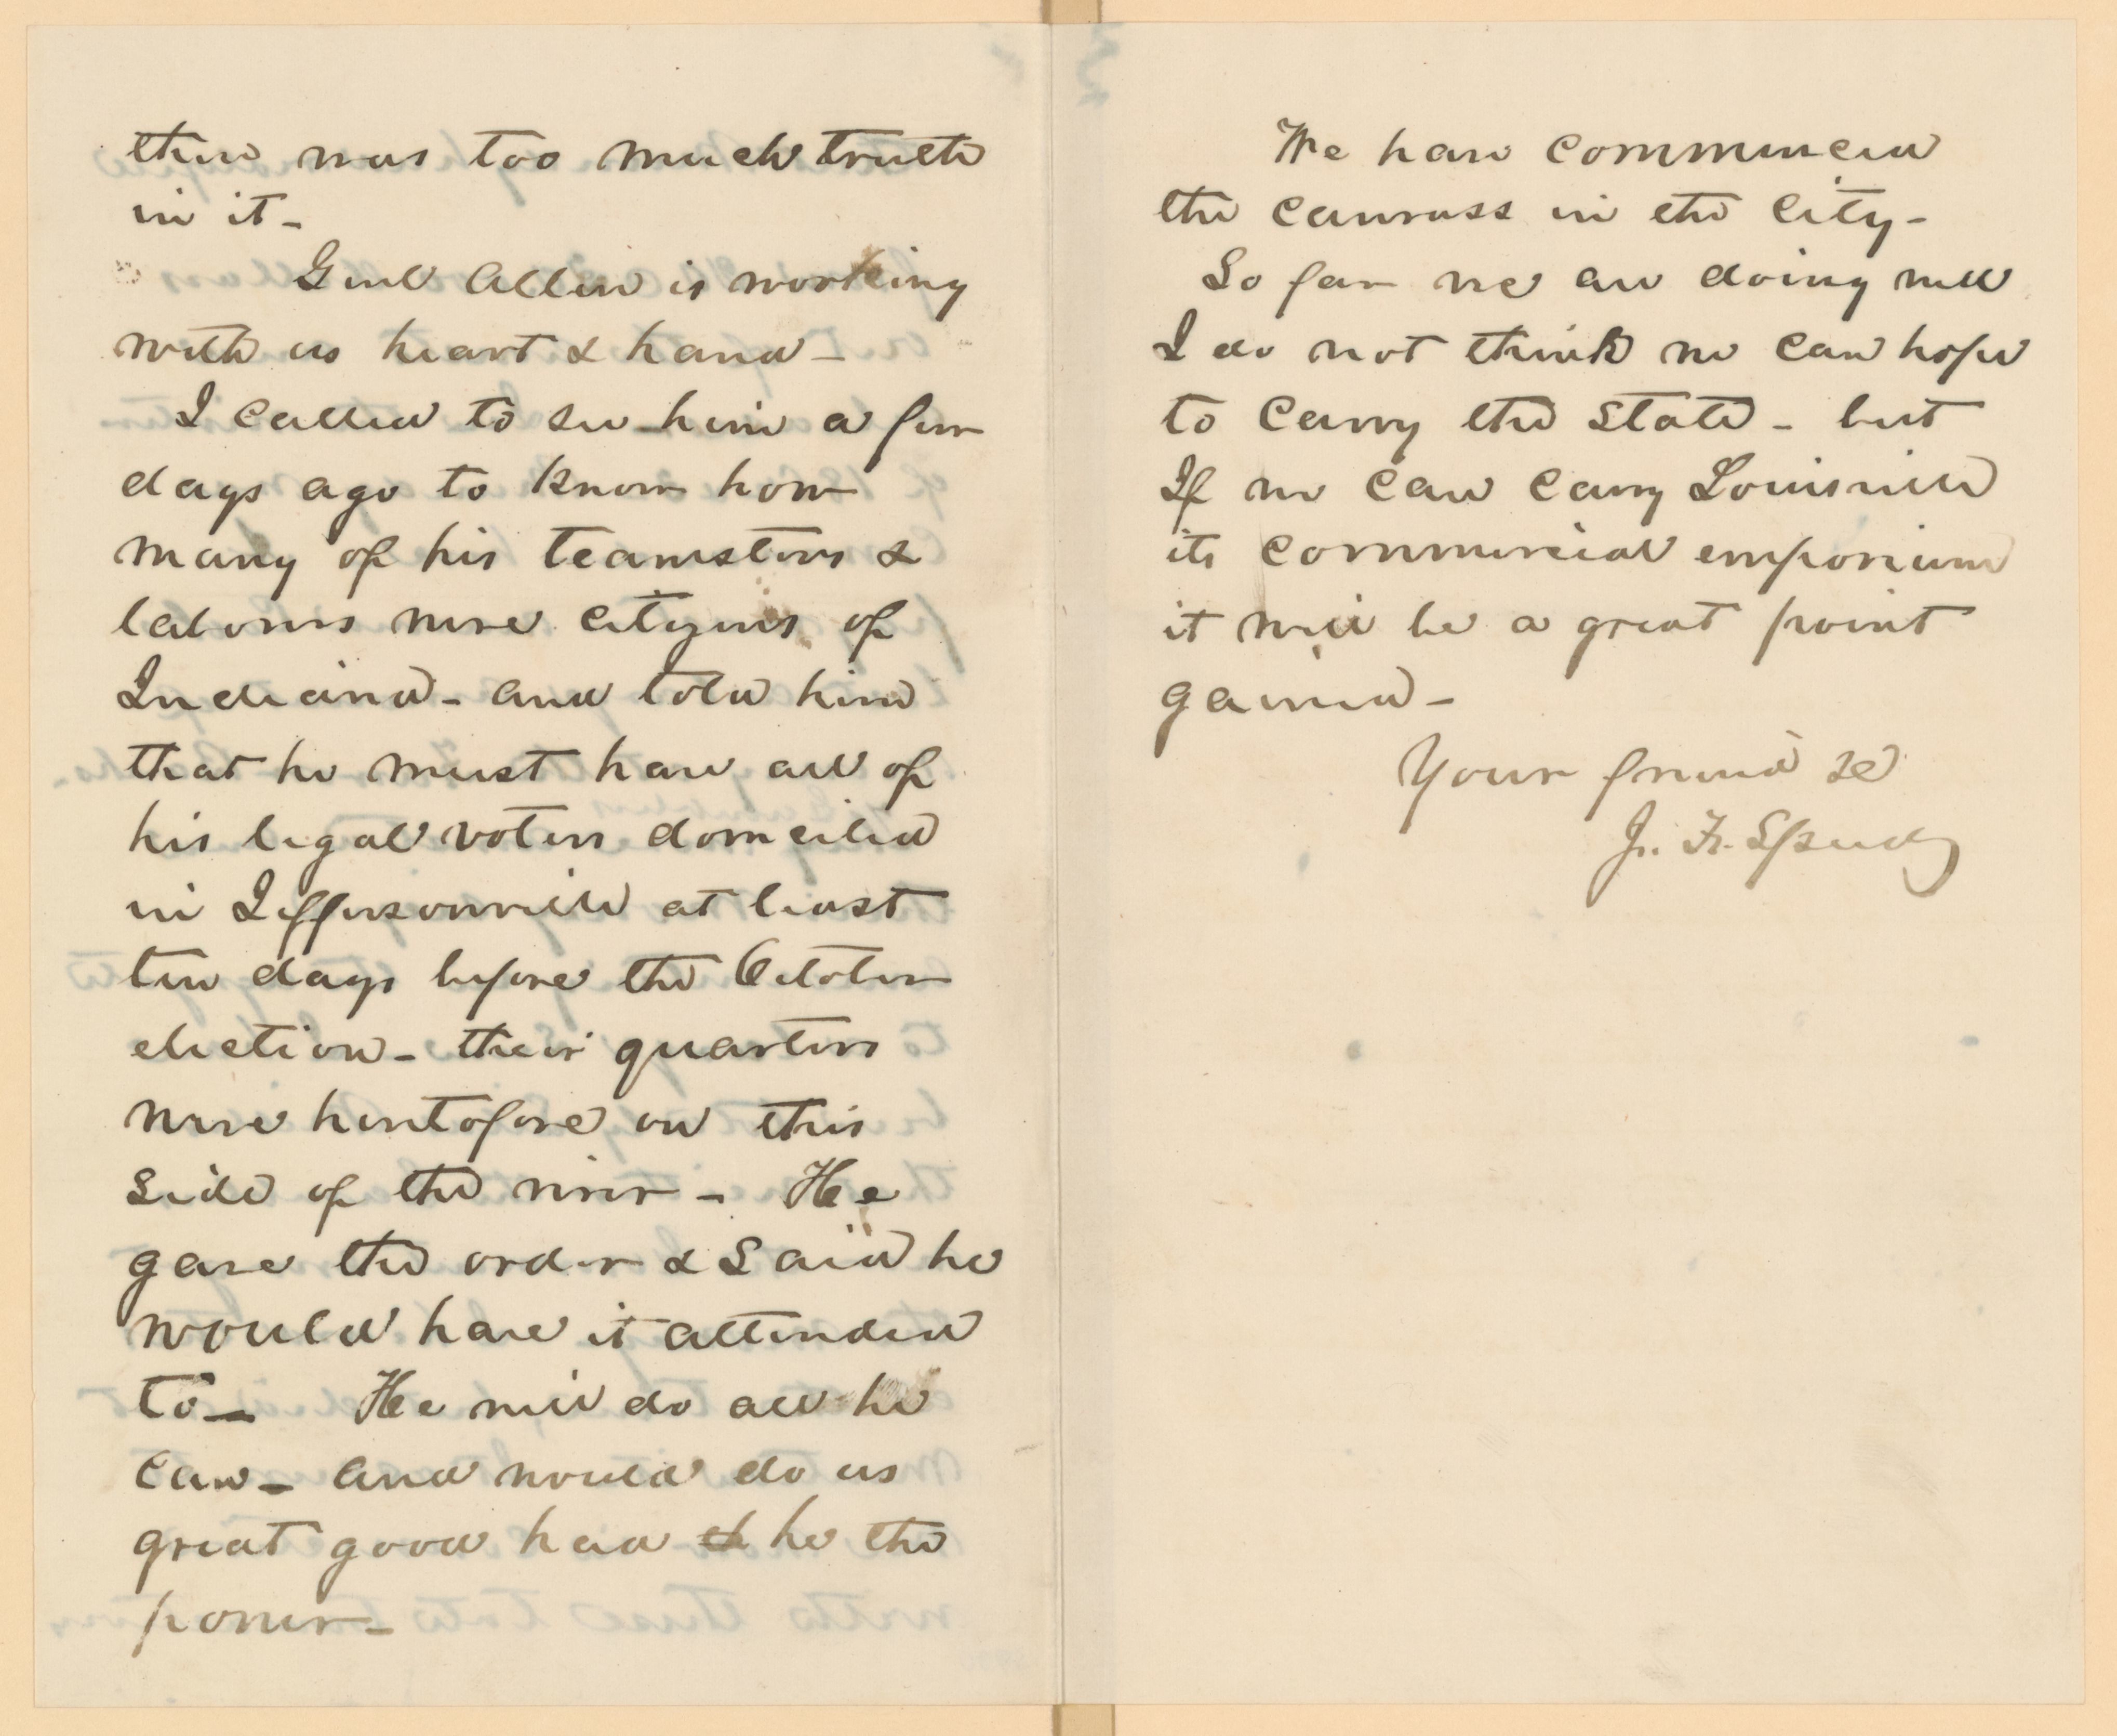 there was too much truth
in it -
Genl Allen is working
with us heart & hand -
I called to see him a few
days ago to know how
many of his teamsters &
laborers were citizens of
Indiana - and told him
that he must have all of
his legal voters domciled
in Jeffersonville at least
ten days before the October
election - their quarters
were heretofore on this
side of the river - He
gave the order & said he
would have it attended
to - He will do all he
can - and would do us
great good had he the
power -
We have commenced
the canvass in the city -
So far we are doing well
I do not think we can hope
to carry the State - but
If we can carry Louisville
its commercial emporium
it will be a great point
gained -
Your friend &c
J. F. Speed